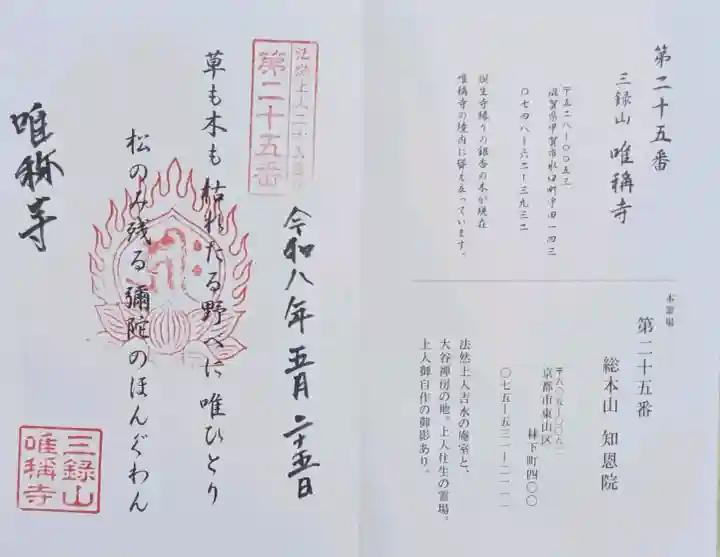 第二十五番
三録山 唯稱寺
〒五二八ー〇〇五三
滋賀県甲賀市水口町宇田一四三
〇七四八ー六二ー三九三二
誕生寺縁りの銀杏の木が現在
唯稱寺の境内に聳え立っています。
本霊場
第二十五番
総本山 知恩院
京都市東山区
林下町四〇〇
〇七五ー五三一ー二一一一
法然上人吉水の庵室と、
大谷禅房の地。上人往生の霊場。
上人御自作の御影あり。
令和八年五月二十五日
第二十五番
草も木も枯れたる野べに唯ひとり
松のみ残る彌陀のほんぐわん
唯称寺
三録山
唯稱寺